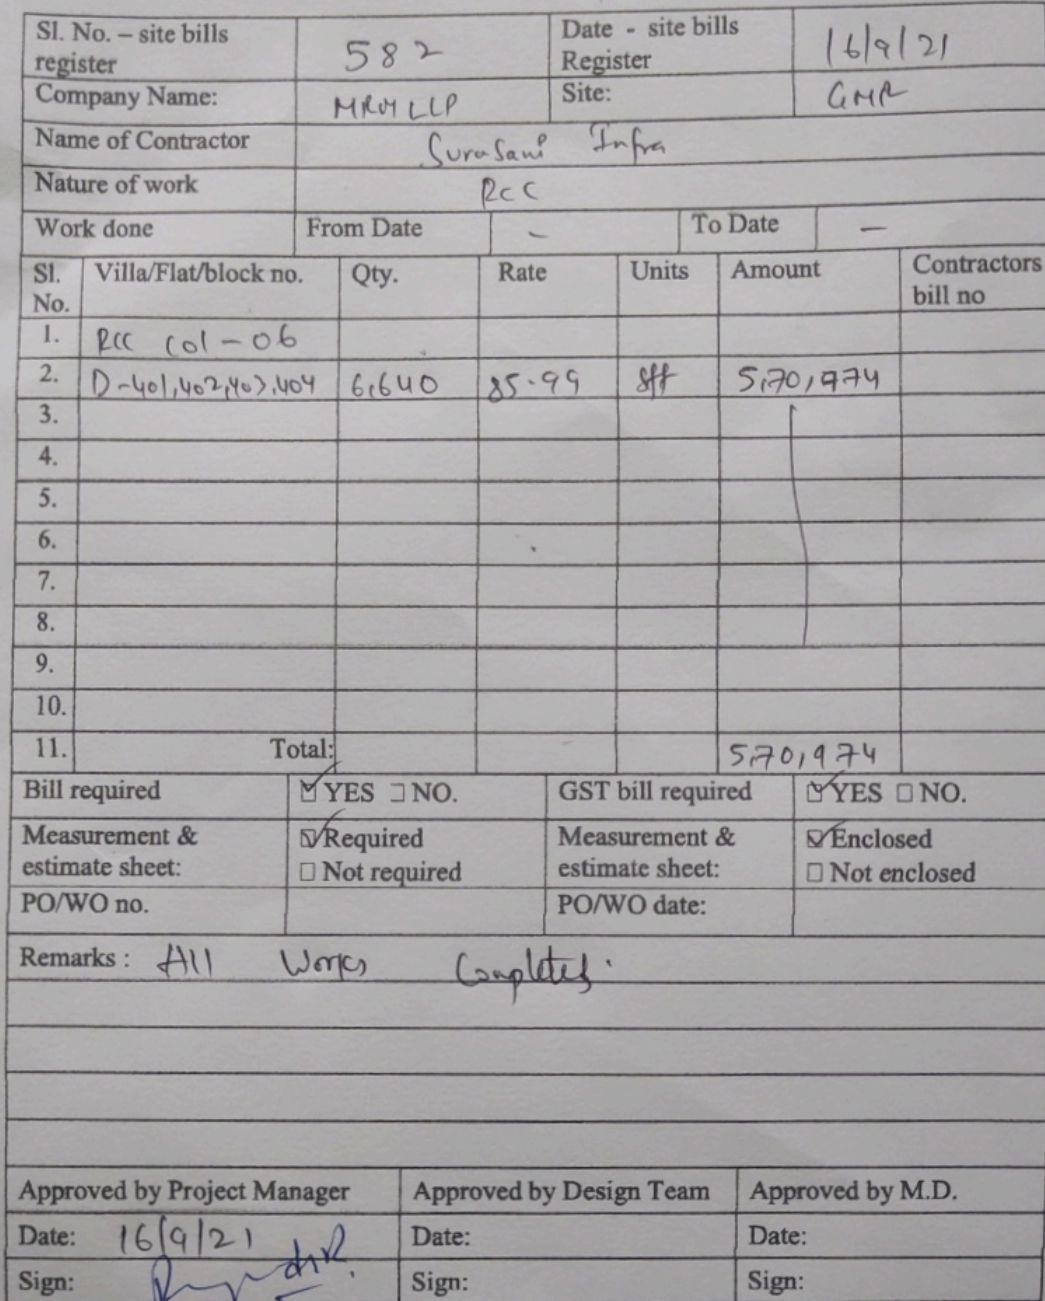 Sl. No. – site bills register 582 Date - site bills Register 16/9/21
Company Name: MRM LLP Site: GMR
Name of Contractor Surasani Infra
Nature of work RCC
Work done From Date - To Date -
Sl. No. Villa/Flat/block no. Qty. Rate Units Amount Contractors bill no
1. RCC Col - 06
2. D-401,402,403,404 6,640 85.99 sft 5,70,974
3.
4.
5.
6.
7.
8.
9.
10.
11. Total: 5,70,974
Bill required ☑ YES ☐ NO. GST bill required ☑ YES ☐ NO.
Measurement & estimate sheet: ☑ Required ☐ Not required Measurement & estimate sheet: ☑ Enclosed ☐ Not enclosed
PO/WO no. PO/WO date:
Remarks : All Works Completed.
Approved by Project Manager Approved by Design Team Approved by M.D.
Date: 16/9/21 Date: Date:
Sign: Sign: Sign: